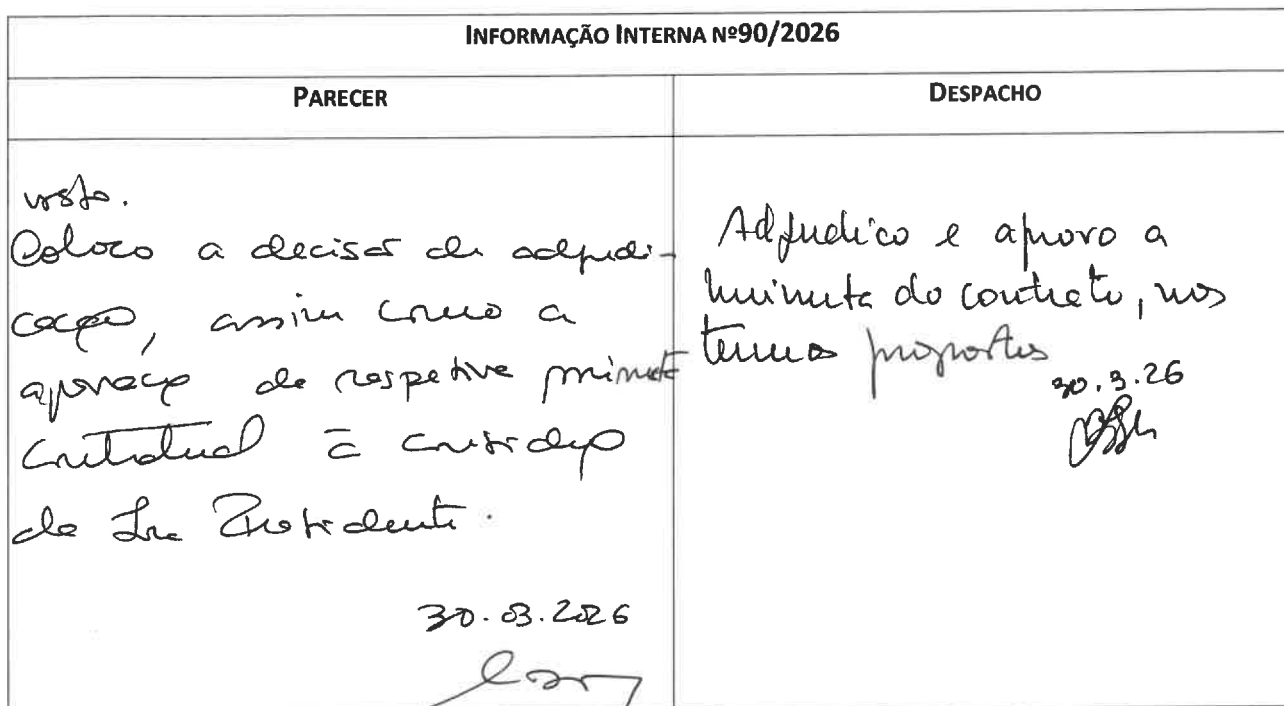 INFORMAÇÃO INTERNA Nº90/2026
PARECER
visto.
Coloco a decisão de adjudi-
cação, assim como a
aprovação da respetiva minuta
contratual à consideração
da Sra Presidente.
30.03.2026
DESPACHO
Adjudico e aprovo a
minuta do contrato, nos
termos propostos
30.3.26